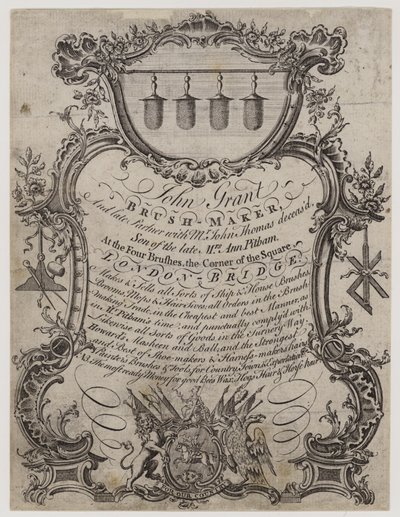 John Grant
BRUSH-MAKER,
And late Partner with Mr. John Thomas deceas'd,
Son of the late Mrs. Ann Pitham.
At the Four Brushes, the Corner of the Square
LONDON-BRIDGE
Makes & Sells all Sorts of Ship & House Brushes,
Mops & Hair Sives; all Orders in the Brush-
making Trade, in the Cheapest and best Manner, as
in Mr. Pitham's time; and punctually comply'd with.
Likewise all Sorts of Goods in the Turnery Way.
and Ball, and the Strongest
and Best of Shoe-makers & Harness-makers hairs
Brushes & Tools, for Country, Town, & Exportation.
NB. The most ready Money for good Bees Wax, Hogs Hair & Horse hair